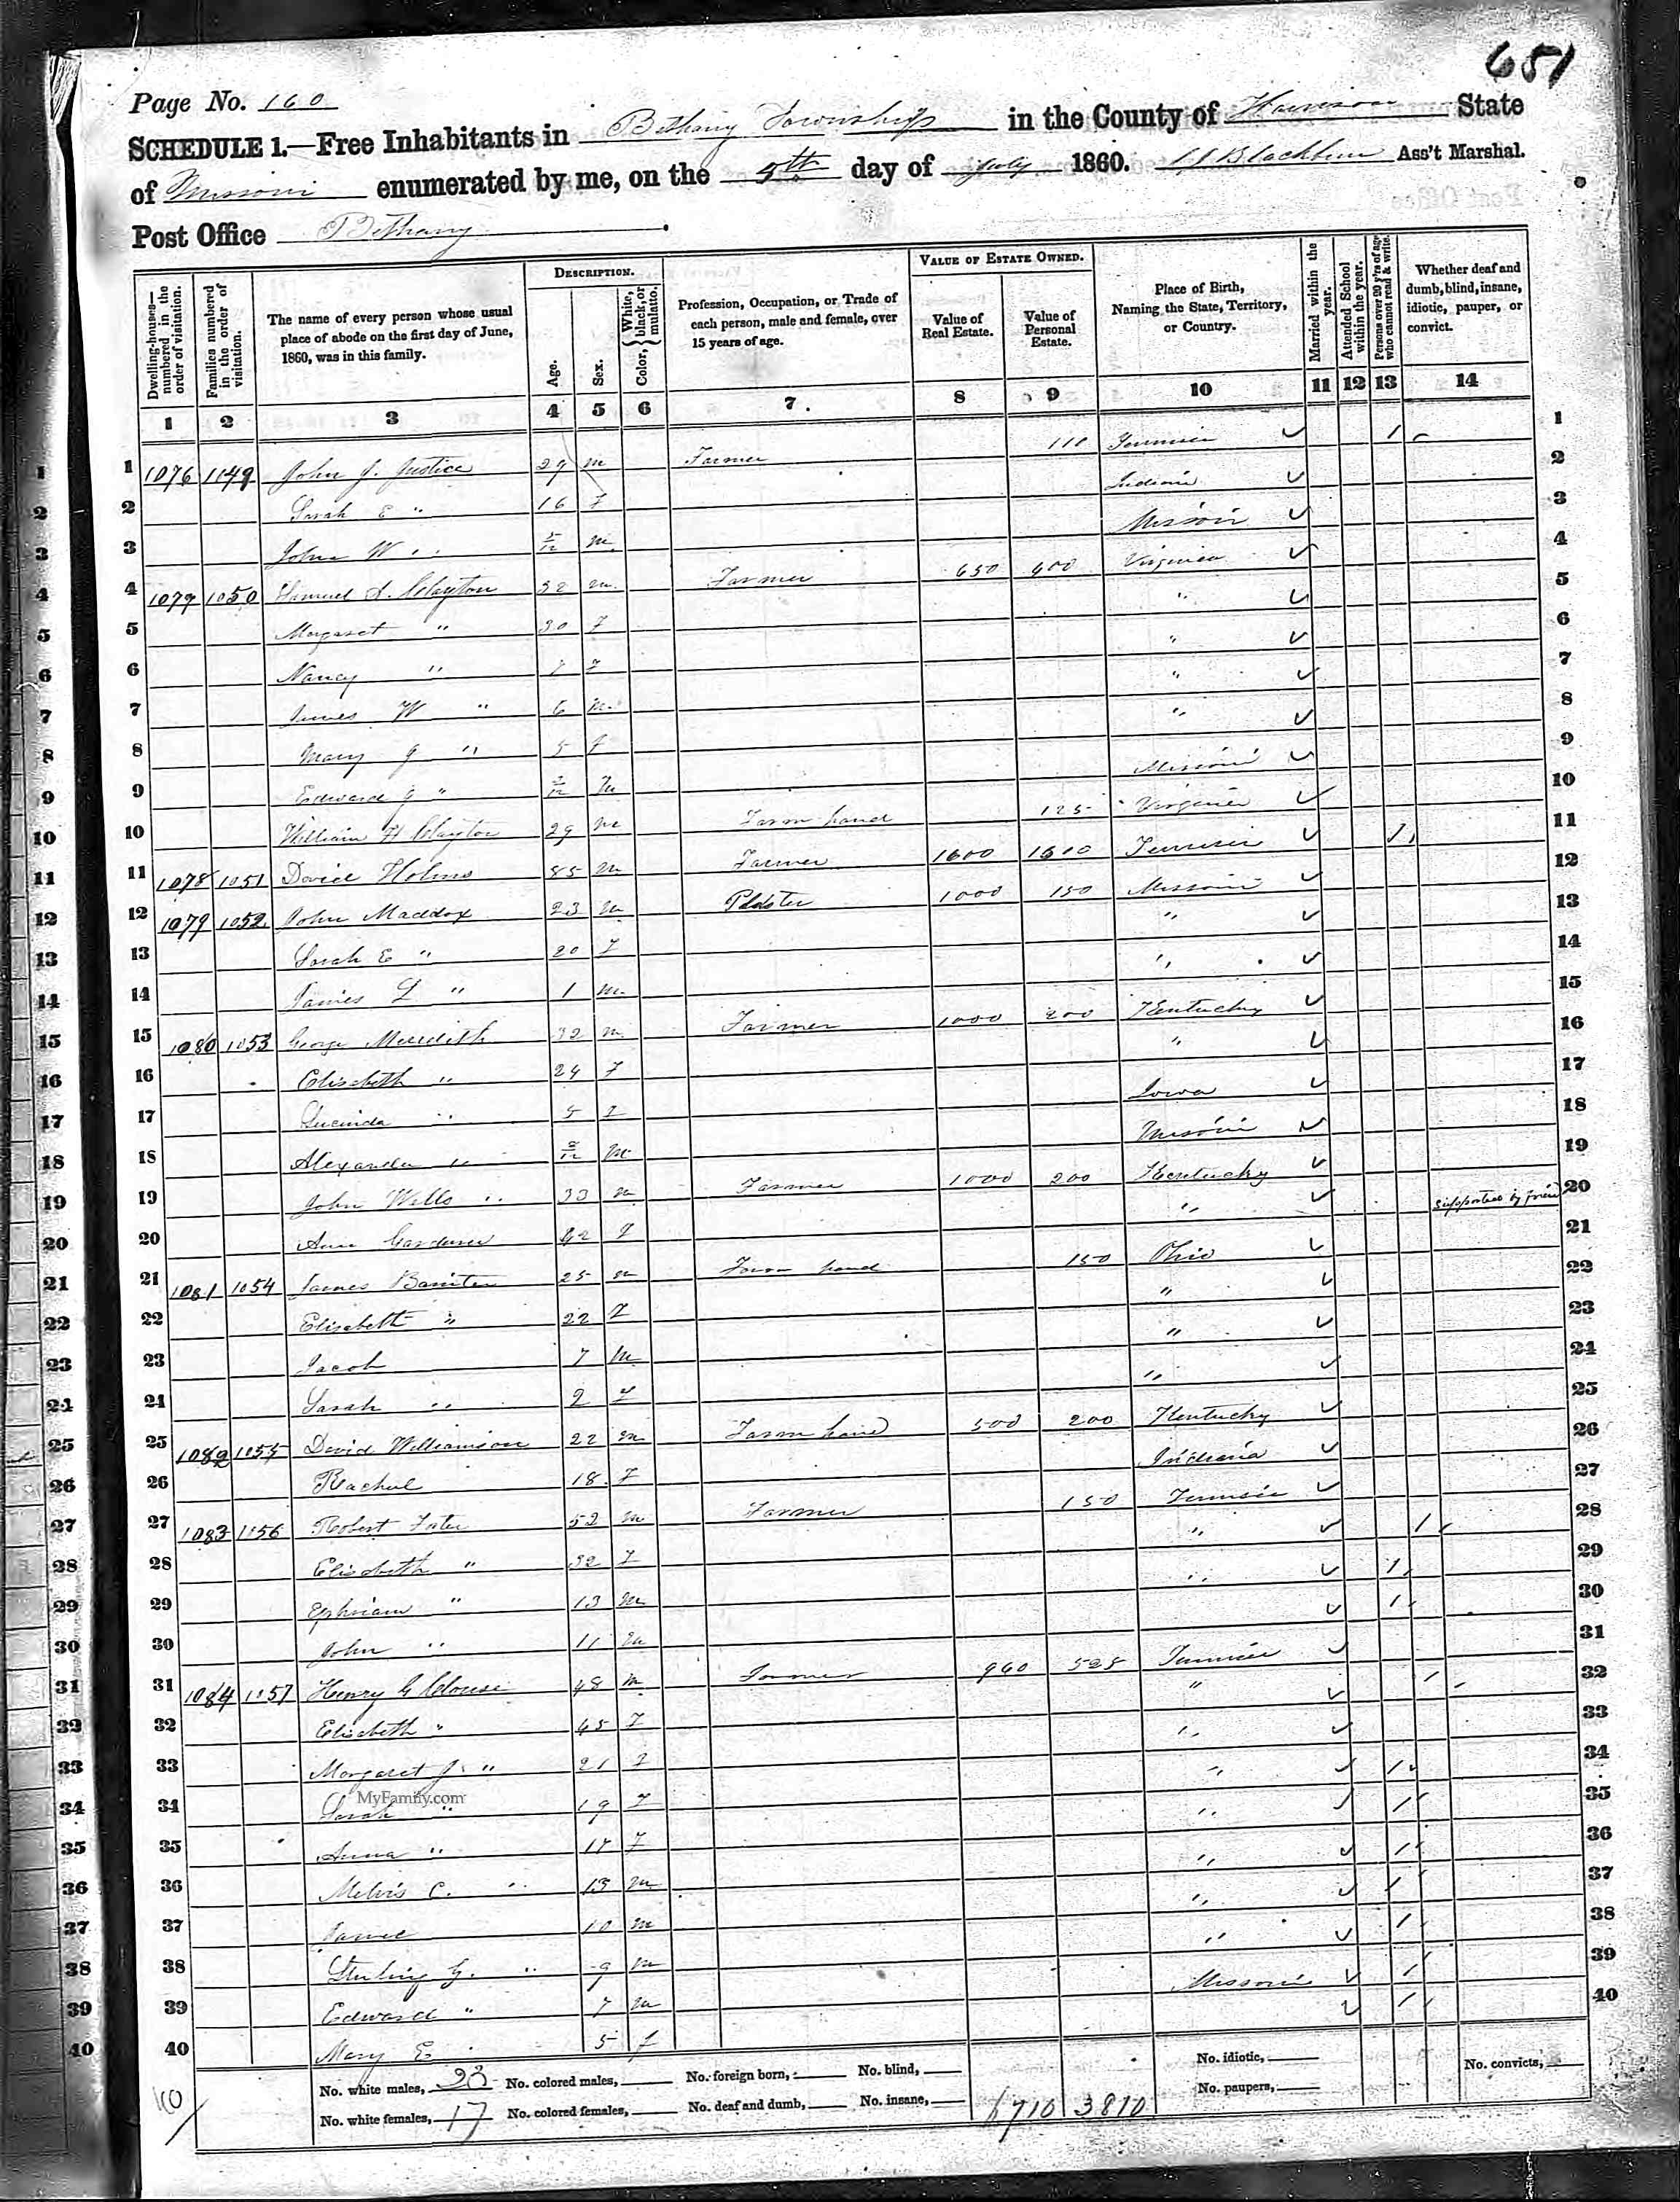 651
Page No. 160
SCHEDULE 1.—Free Inhabitants in Bethany Township in the County of Harrison State
of Missouri enumerated by me, on the 5th day of July 1860. Blackburn Ass't Marshal.
Post Office Bethany.
DESCRIPTION. VALUE OF ESTATE OWNED.
Dwelling-houses—numbered in the order of visitation. Families numbered in the order of visitation. The name of every person whose usual place of abode on the first day of June, 1860, was in this family. Age. Sex. Color, {White, black, or mulatto. Profession, Occupation, or Trade of each person, male and female, over 15 years of age. Value of Real Estate. Value of Personal Estate. Place of Birth, Naming the State, Territory, or Country. Married within the year. Attended School within the year. Persons over 20 y'rs of age who cannot read & write. Whether deaf and dumb, blind, insane, idiotic, pauper, or convict.
1 2 3 4 5 6 7 8 9 10 11 12 13 14
1 1076 1149 John J. Justice 29 m Farmer 110 1
2 Sarah E " 16 F Indiana 2
3 John W " 5/12 m 3
4 1079 1050 Samuel Clayton 32 m Farmer 650 400 Virginia 4
5 Margaret " 30 F " 5
6 Nancy " F " 6
7 James W " 6 m " 7
8 Mary J " 5 f " 8
9 Edward J " m Missouri 9
10 William H Clayton 29 m Farm hand 125 Virginia 10
11 1078 1051 David Holms m Farmer 1600 11
12 1079 1052 John Maddox 23 m 1000 150 Missouri 12
13 Sarah E " 20 F " 13
14 James L " 1 m " 14
15 1080 1053 George Meredith 32 m Farmer 1000 200 Kentucky 15
16 Elisabeth " 24 F " 16
17 Lucinda " 5 F Iowa 17
18 Alexander " m 18
19 John Wells " 33 m Farmer 1000 200 Kentucky 19
20 Ann F " supported by 20
21 1081 1054 James 25 m Farm hand 150 Ohio 21
22 Elisabeth " 22 F " 22
23 Jacob 7 m " 23
24 Sarah " 2 F " 24
25 1082 1055 David Williamson 22 m Farm hand 500 200 Kentucky 25
26 Rachel 18 F Indiana 26
27 1083 1156 Robert 52 m Farmer 150 27
28 Elisabeth " 32 F " 1 28
29 Ephriam " 13 m " 1 29
30 John " 11 m 1 30
31 1084 1157 Henry G Clouse 48 m Farmer 960 525 31
32 Elisabeth " 45 F " 1 32
33 Margaret J " 21 F " 33
34 Sarah " 19 F " 1 34
35 Anna " 17 F " 1 35
36 C. " 13 m " 1 36
37 10 m " 1 37
38 Sterling G. " 9 m " 1 38
39 Edward " 7 m Missouri 1 39
40 Mary E 5 f 1 40
MyFamily.com
No. white males, 23 No. colored males, No. foreign born, No. blind, No. idiotic, No. convicts,
No. white females, 17 No. colored females, No. deaf and dumb, No. insane, 6710 3810 No. paupers,